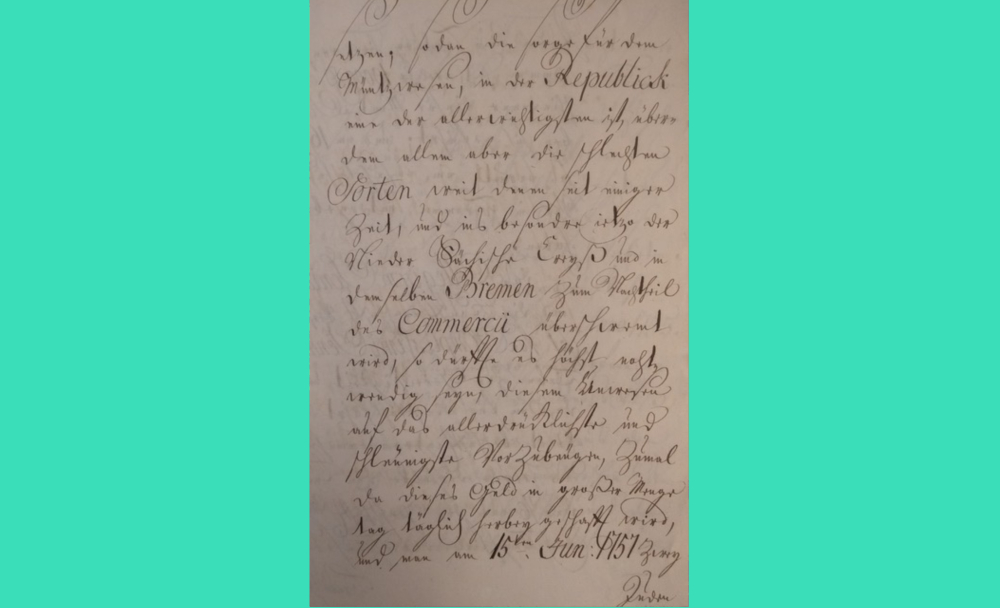 etzen, sodan die sorge für dem
Müntzwesen, in der Republick
eine der allerwichtigsten ist, über-
dem allem aber die schlechten
Sorten weit denen seit einiger
Zeit, und ins besondre ietzo der
Nieder Sächische Creyß und in
demselben Bremen zum Nachtheil
des Commercii überschwemt
wird, so dürffte es höchst noht-
wendig seyn, diesem Unwesen
auf das allerdrücklichste und
schleünigste Vorzubeügen, Zumal
da dieses Geld in großer Menge
tag täglich herbey geschafft wird,
und man am 15ten Jun: 1751 Zwey
Juden